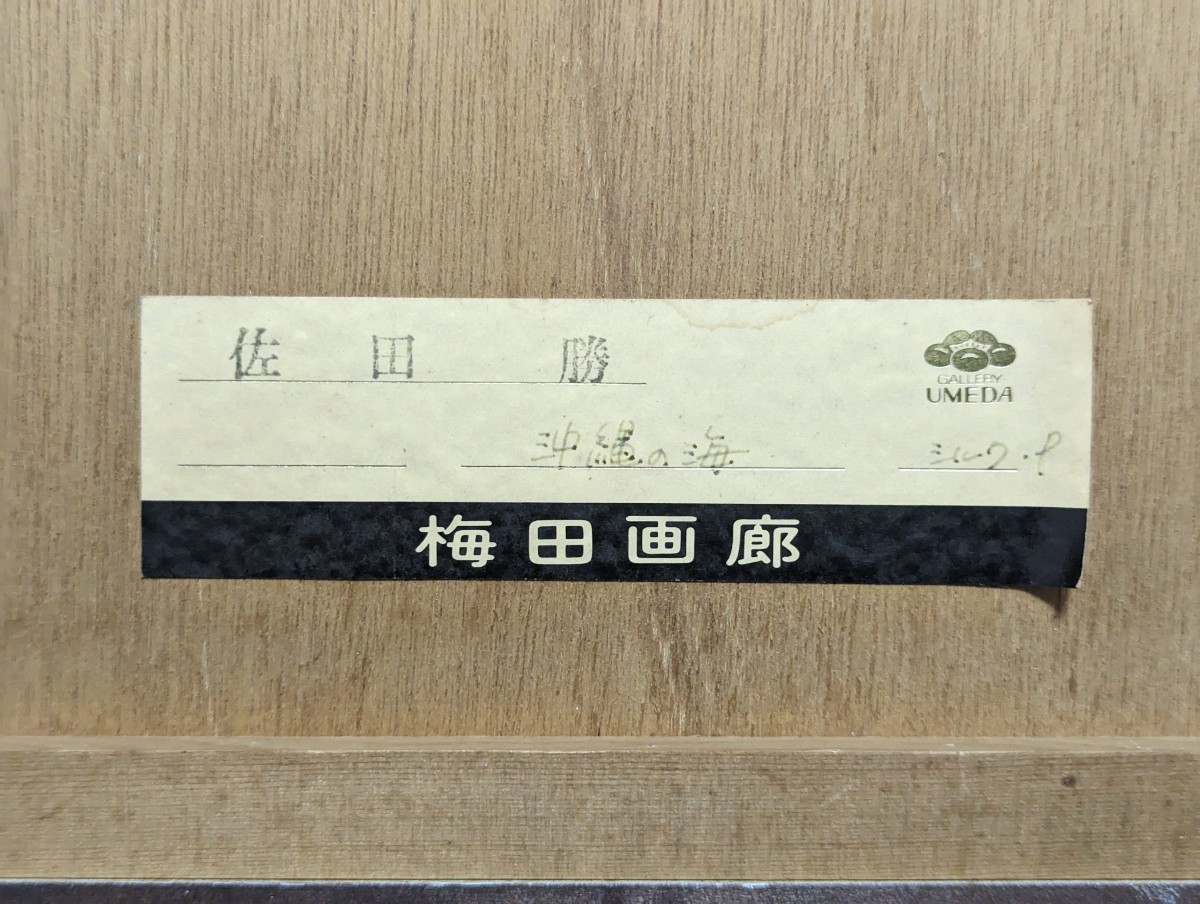 佐田 勝
GALLERY
UMEDA
沖縄の海 シルク・P
梅田画廊